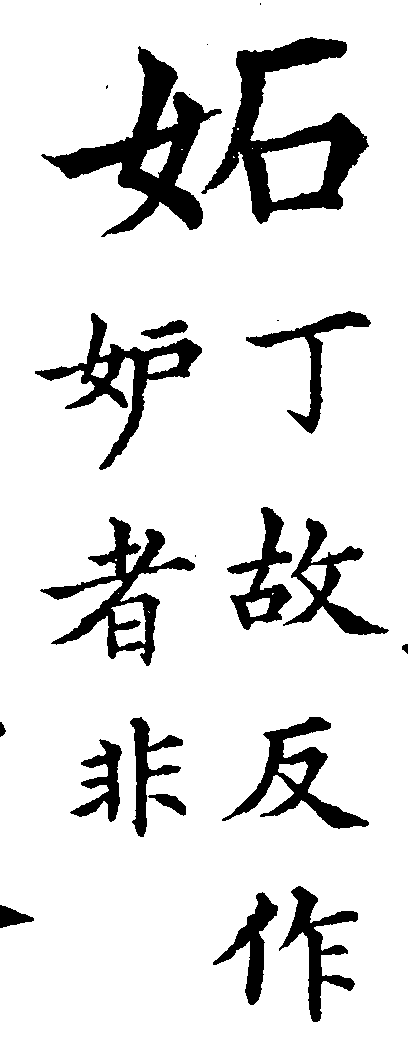 妬
丁故反作
妒者非